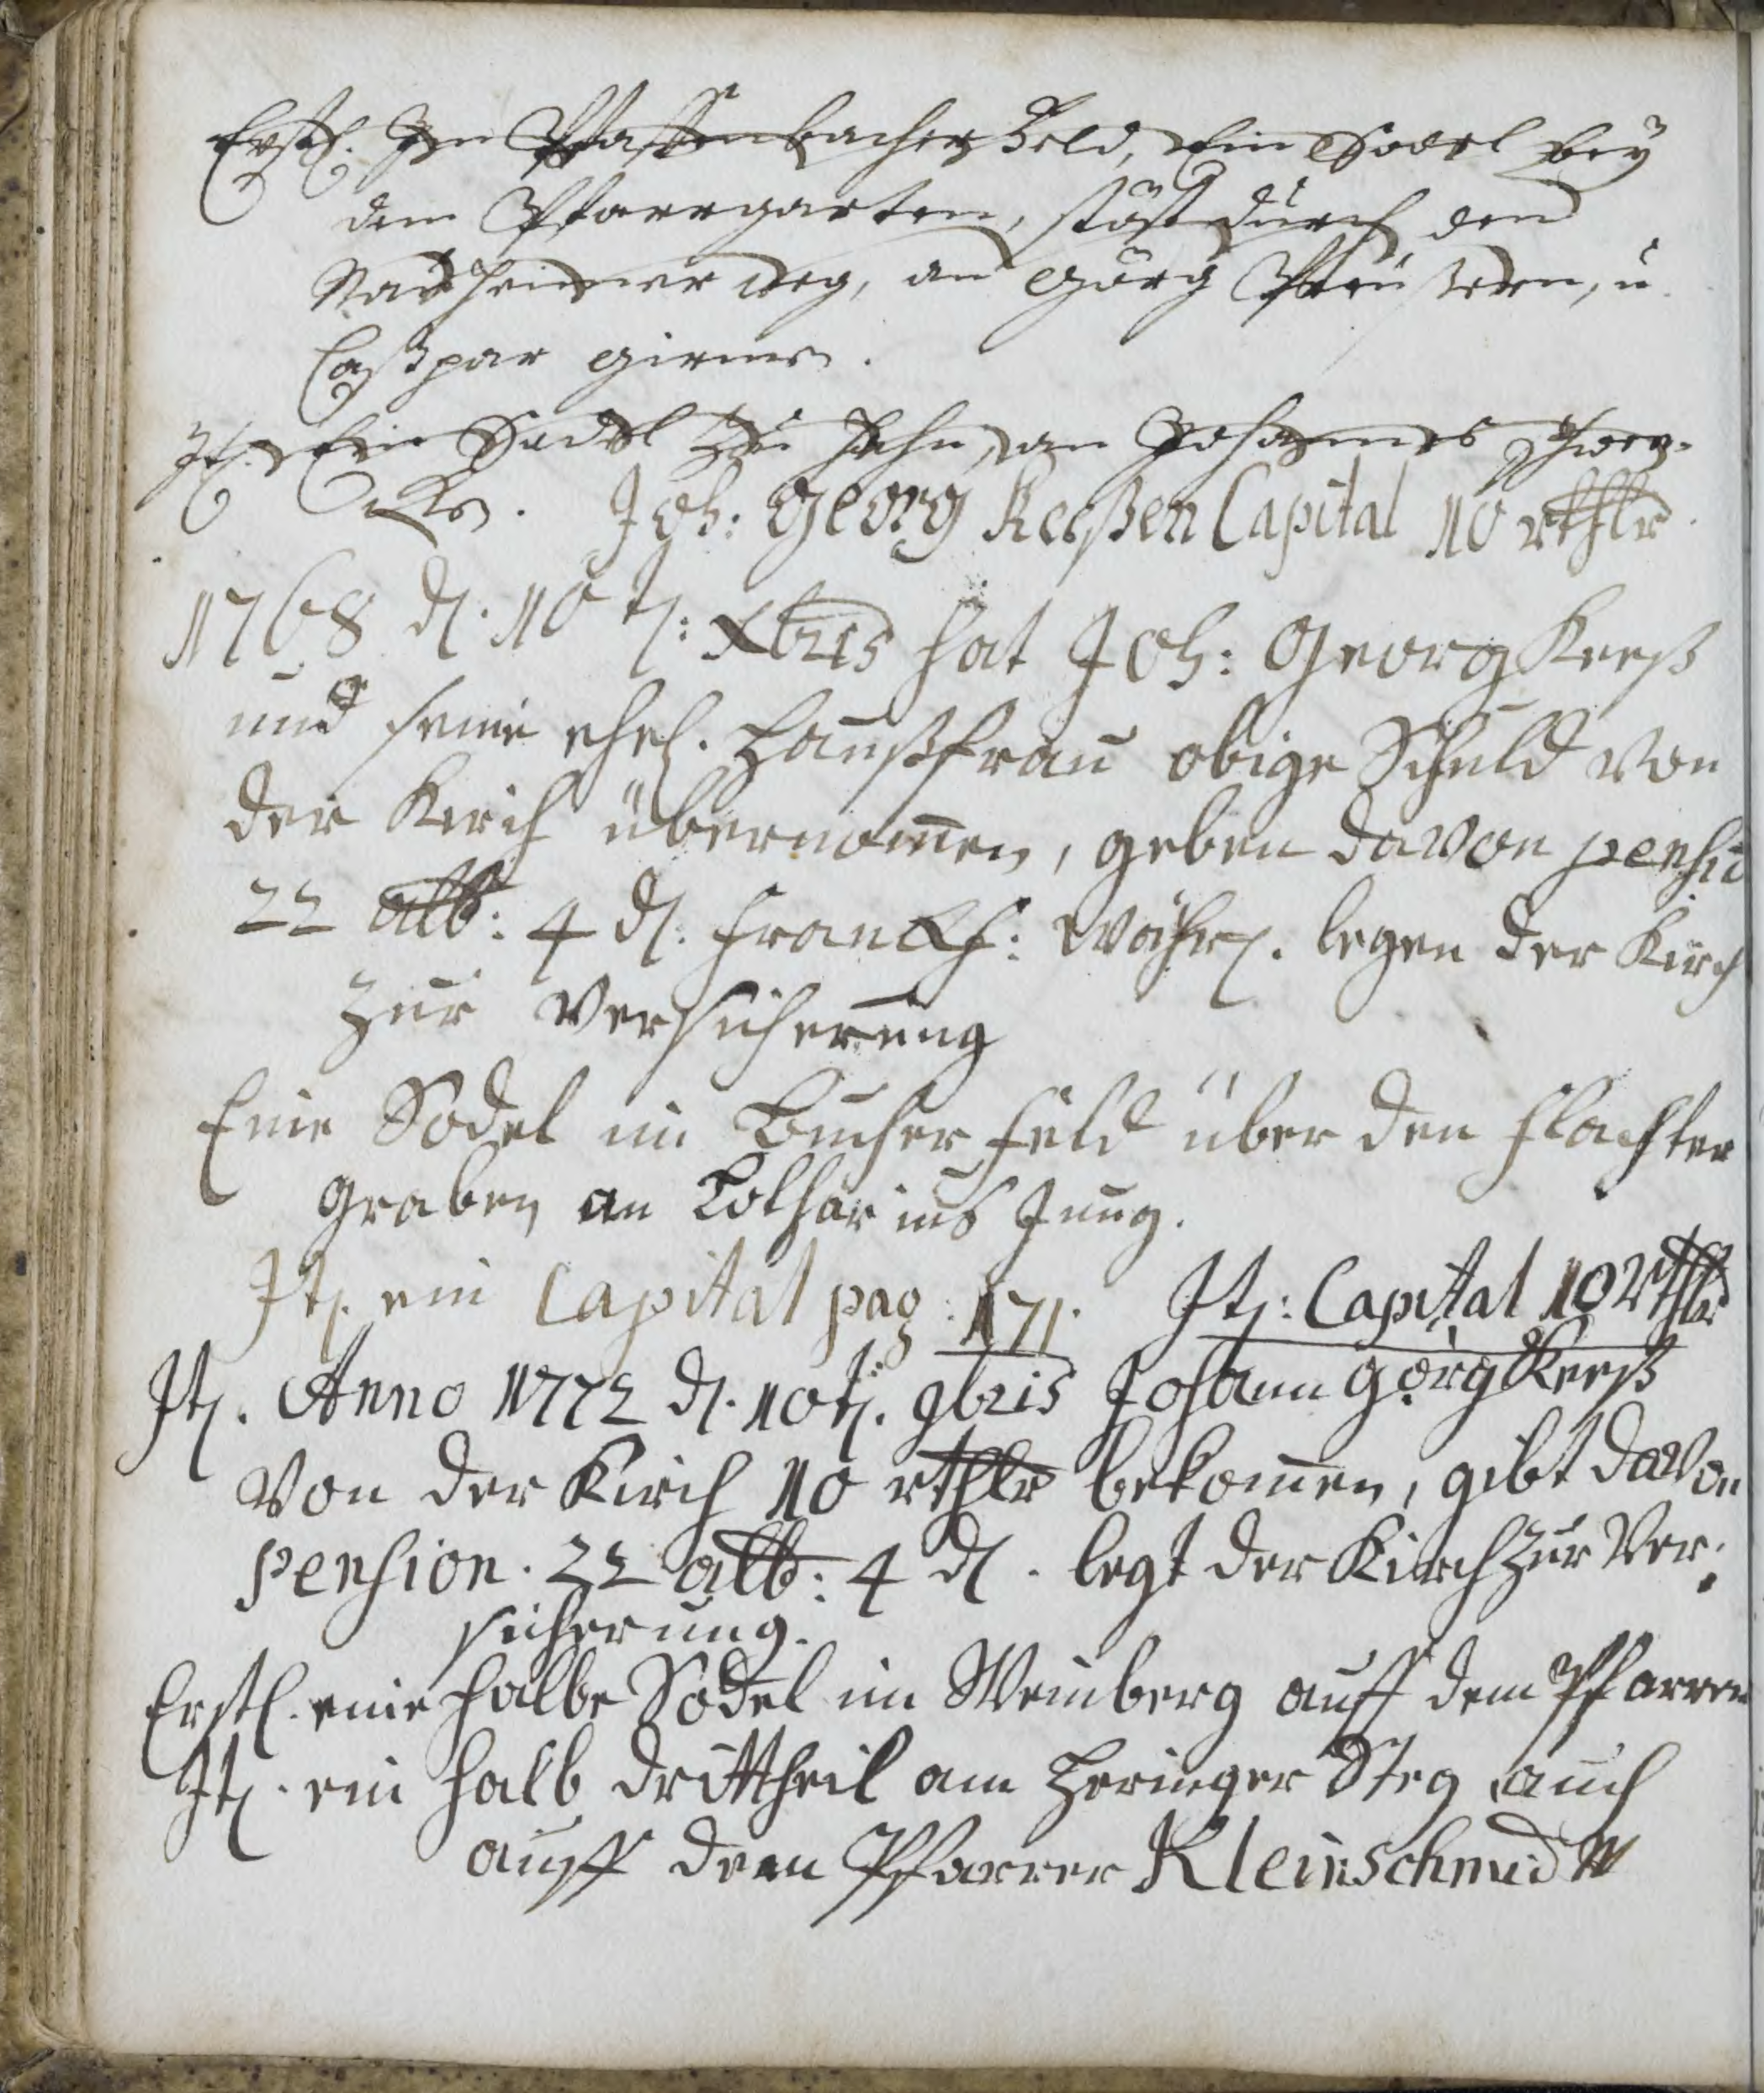 Erstl. Im Pfaffenbacher Feld, Ein Sodel bey
dem Pfarrgarten, stöst durch den
Nauheimer weg, an Görg u.
Caspar girms.
Itz. Ein Sodel zu an Johannes
Joh: Georg Keeßen Capital 10 rthlr.
1768 d. 10 t: Xbris hat Joh: Georg Keeß
und seine ehel. Haußfrau obige Schuld von
der Kirch übernom̄en, geben davon pensio
22 alb: 4 d. Franckf: Währ. legen der Kirch
zur Versicherung
Eine Sodel im Bucher Feld über den Flachter
graben an Lotharius Jung.
Itz. ein Capital pag: 171. Itz: Capital 10 rthlr
Itz. Anno 1772 d. 10 t. 9bris Johann Görg Keeß
von der Kirch 10 rthlr bekom̄en, gibt davon
pension. 22 alb: 4 d. legt der Kirch zur Ver:
sicherung.
Erstl. eine halbe Sodel im Weinberg auff dem Pfarrer
Itz. ein halb drittheil am Heringer Steg auch
auff dem Pfarrer Kleinschmid